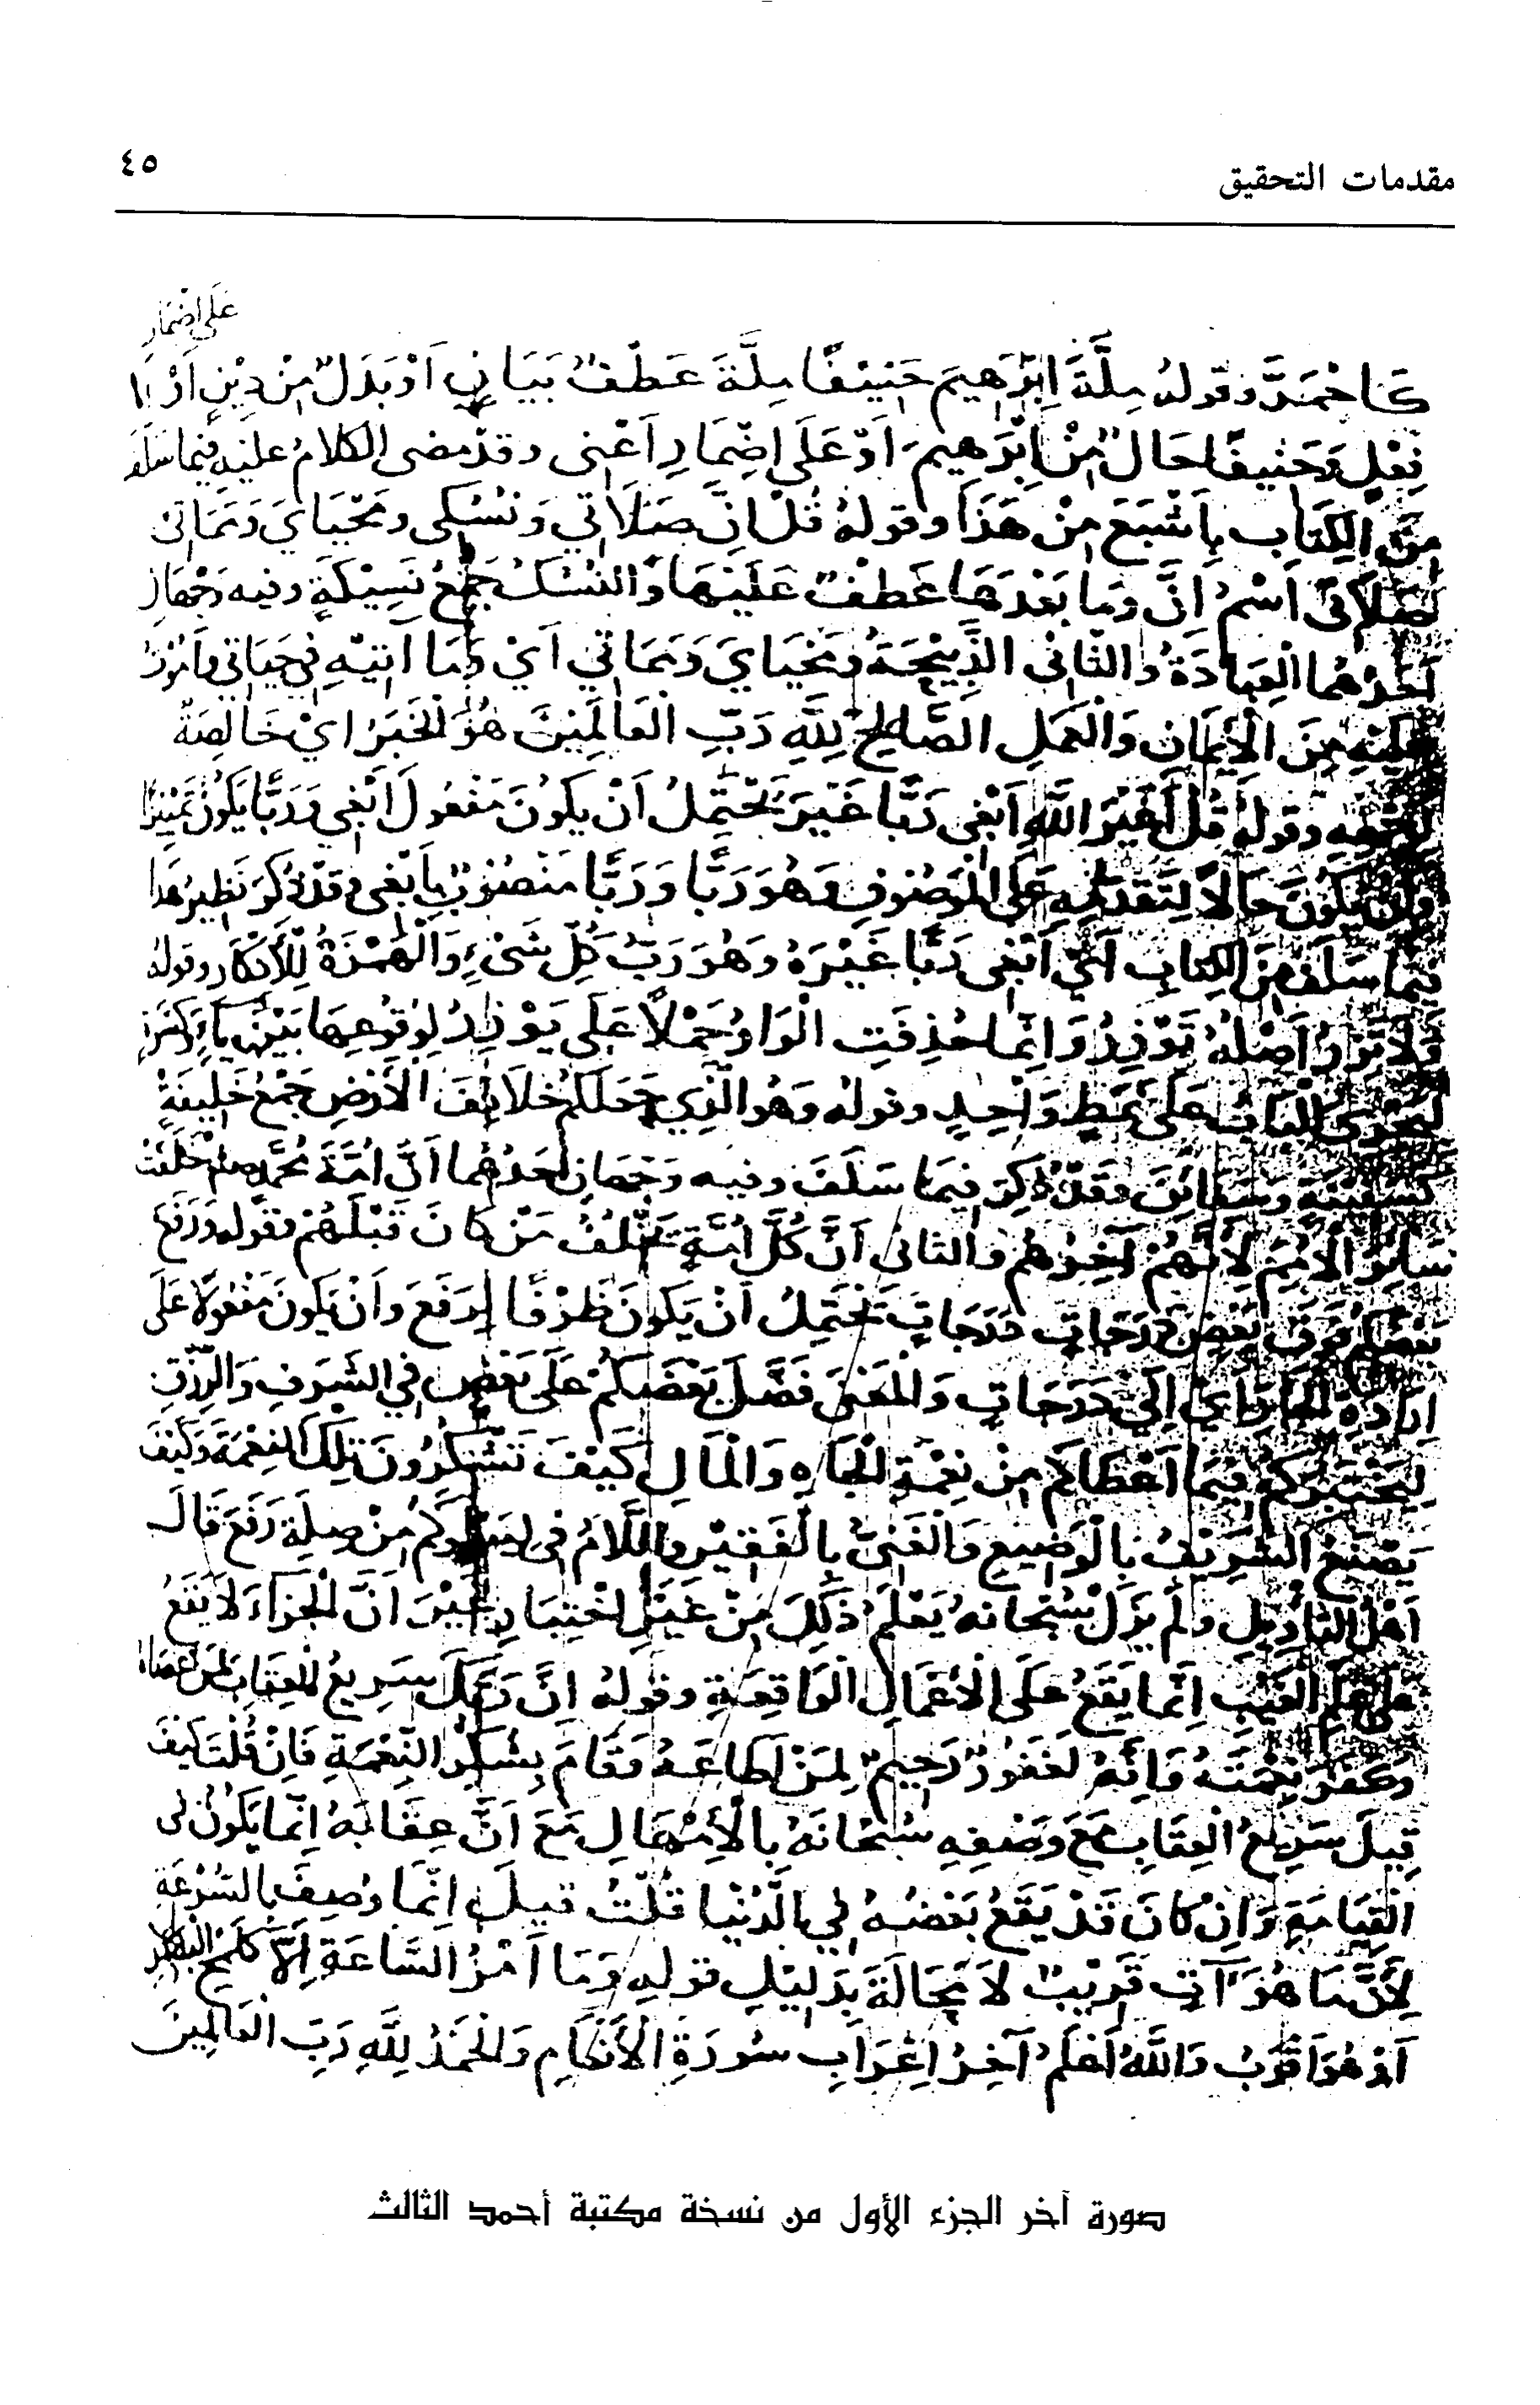 مقدمات التحقيق
٤٥
على إضمار
كَاحْمَرَّ وقوله مِلَّةَ إِبْرَهِيمَ حَنِيفًا مِلَّةَ عَطْفُ بَيَانٍ أَوْ بَدَلٌ مِنْ دِيْنٍ أَوْ
فِعْلٍ وَحَنِيفًا حَالٌ مِنْ إِبْرَهِيمَ أَوْ عَلَى إِضْمَارِ أَعْنِى وقد مضى الكلامُ عليه فيما سلف
مِنَ الكِتَابِ بِأَشْبَعَ مِنْ هَذَا وقولهُ قُلْ إِنَّ صَلَاتِي وَنُسُكِى وَمَحْيَايَ وَمَمَاتِى
صَلَاتِى اسْمُ إِنَّ وما بَعْدَهَا عَطْفٌ عَلَيْهَا وَالنُسُكُ جَمْعُ نَسِيْكَةٍ وفيه وَجْهَانِ
أحدُهُمَا الْعِبَادَةُ والثَّانِى الذَّبِيْحَةُ وَمَحْيَايَ وَمَمَاتِي أَيْ وَمَا آتِيْهِ في حَيَاتِي وَأَمُوْتُ
عليْهِ مِنَ الْإِيْمَانِ وَالْعَمَلِ الصَّالِحِ لِلَّهِ رَبِّ الْعَالَمِيْنَ هُوَ الْخَبَرُ أيْ خَالِصَةٌ
لوَجْهِهِ وقولهُ قُلْ أَغَيْرَ اللَّهِ أَبْغِى رَبًّا غَيْرَ يَحْتَمِلُ أَنْ يَكُونَ مَفْعُولَ أَبْغِي وَرَبًّا يَكُونُ تَمْيِيْزًا
وأَنْ يَكُوْنَ حَالًا لِتَقَدُّمِهِ عَلَى الْمَوْصُوْفِ وَهُوَ رَبًّا وَرَبًّا مَنْصُوْبٌ بِأَبْغِى وقَدْ ذُكِرَ نَظِيْرُ هَذا
فِيْمَا سَلَفَ مِنَ الْكِتَابِ أَيْ أَبْغِى رَبًّا غَيْرَهُ وَهُوَ رَبُّ كُلِّ شَىْءٍ وَالْهَمْزَةُ لِلْإِنْكَارِ وقولهُ
وَلَا تَزِرُ أَصْلُهُ تَوْزِرُ وَإِنَّمَا حُذِفَتِ الْوَاوُ حَمْلًا عَلَى يَوْزِرُ لِوُقُوْعِهَا بَيْنَ يَاءٍ وَكَسْرَةٍ
لِيَجْرِىَ الْبَابُ عَلَى نَمَطٍ وَاحِدٍ وقوله وَهُوَ الَّذِي جَعَلَكُمْ خَلَائِفَ الْأَرْضِ جَمْعُ خَلِيْفَةٍ
كسَفِيْنَةٍ وسَفَائِنَ وقَدْ ذُكِرَ فِيمَا سَلَفَ وفيه وَجْهَانِ أَحَدُهُمَا أَنَّ أُمَّةَ مُحَمَّدٍ صلعم خَلَفَتْ
سَائِرَ الْأُمَمِ لِأَنَّهُمْ آخِرُهُمْ والثانى أَنَّ كُلَّ أُمَّةٍ تَخْلُفُ مَنْ كَانَ قَبْلَهُمْ وقوله وَرَفَعَ
بَعْضَكُمْ فَوْقَ بَعْضٍ دَرَجَاتٍ دَرَجَاتٍ يَحْتَمِلُ أَنْ يَكُونَ ظَرْفًا لِرَفَعَ وَأَنْ يَكُونَ مَفْعُولًا عَلَى
إِرَادَةِ الْجَارِّ أَيْ إِلَى دَرَجَاتٍ وَالْمَعْنَى فَضَّلَ بَعْضَكُمْ عَلَى بَعْضٍ فِي الشَّرَفِ وَالرِّزْقِ
لِيَخْتَبِرَكُمْ فِيمَا أَعْطَاكُمْ مِنْ نِعْمَةِ الْجَاهِ وَالْمَالِ كَيْفَ تَشْكُرُونَ تِلْكَ النِعْمَةَ وَكَيْفَ
يَصْنَعُ الشَّرِيْفُ بِالْوَضِيْعِ وَالْغَنِىُّ بِالْفَقِيْرِ وَاللَّامُ فِى لِيَبْلُوَكُمْ مِنْ صِلَةِ رَفَعَ قَالَ
أَهْلُ التَّأْوِيْلِ ولَمْ يَزَلْ سُبْحَانَهُ يَعْلَمُ ذَلِكَ مِنْ غَيْرِ اخْتِبَارٍ غَيْرَ أَنَّ الْجَزَاءَ لَا يَقَعُ
على عِلْمِ الْغَيْبِ إِنَّمَا يَقَعُ عَلَى الْأَعْمَالِ الْوَاقِعَةِ وقولهُ إِنَّ رَبَّكَ سَرِيعُ الْعِقَابِ لِمَنْ عَصَاهُ
وكَفَرَ نِعْمَتَهُ وَإِنَّهُ لَغَفُورٌ رَحِيمٌ لِمَنْ أَطَاعَهُ وَقَامَ بِشُكْرِ النِّعْمَةِ فَإِنْ قُلْتَ كَيْفَ
قِيلَ سَرِيعُ الْعِقَابِ مَعَ وَصْفِهِ سُبْحَانَهُ بِالْإِمْهَالِ مَعَ أَنَّ عِقَابَهُ إِنَّمَا يَكُوْنُ في
الْقِيَامَةِ وَإِنْ كَانَ قَدْ يَقَعُ بَعْضُهُ فِي الدُّنْيَا قُلْتُ قيلَ إِنَّمَا وُصِفَ بِالسُّرْعَةِ
لِأَنَّ مَا هُوَ آتٍ قَرِيْبٌ لَا مَحَالَةَ بِدَلِيْلِ قولهِ وَمَا أَمْرُ السَّاعَةِ إِلَّا كَلَمْحِ الْبَصَرِ
أَوْ هُوَ أَقْرَبُ وَاللَّهُ أَعْلَمُ آخِرُ إِعْرَابِ سُورَةِ الْأَنْعَامِ وَالْحَمْدُ لِلَّهِ رَبِّ الْعَالَمِينَ
صورة آخر الجزء الأول من نسخة مكتبة أحمد الثالث